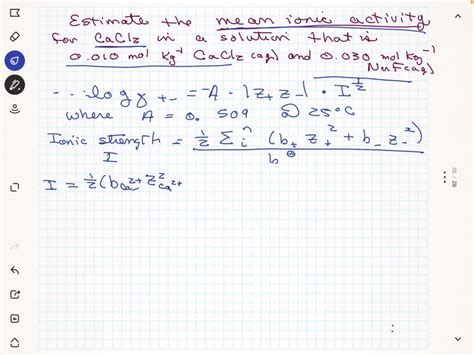 Estimate the mean ionic activity
for CaCl2 in a solution that is
0.010 mol kg⁻¹ CaCl2 (aq) and 0.030 mol kg⁻¹
NaF(aq)
... log γ+- = -A · |z+ z-| · I^½
where A = 0.509 @ 25°C
Ionic strength = ½ Σi^n (b+ z+² + b- z-²)
I b^⊖
I = ½ (bCa²⁺ z²Ca²⁺